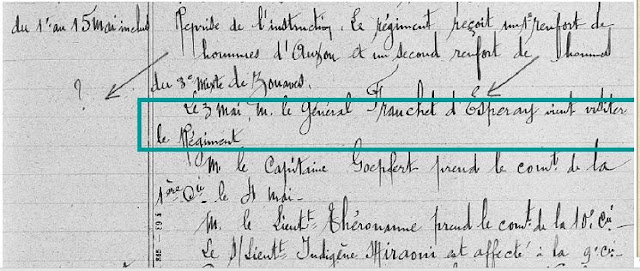 du 1er au 15 mai inclus
Reprise de l'instruction. Le régiment reçoit un 1er renfort de
hommes d'Auzon et un second renfort de hommes
du 3e Mixte de Zouaves.
?
Le 3 mai, M. le Général Franchet d'Esperay vient visiter
le Régiment
M. le Capitaine Goepfert prend le comt. de la
1ère Cie le 4 mai.
M. le Lieutt Thérouanne prend le comt. de la 10e Cie.
Le S/Lieutt Indigène Miraoui est affecté à la 9e Cie.